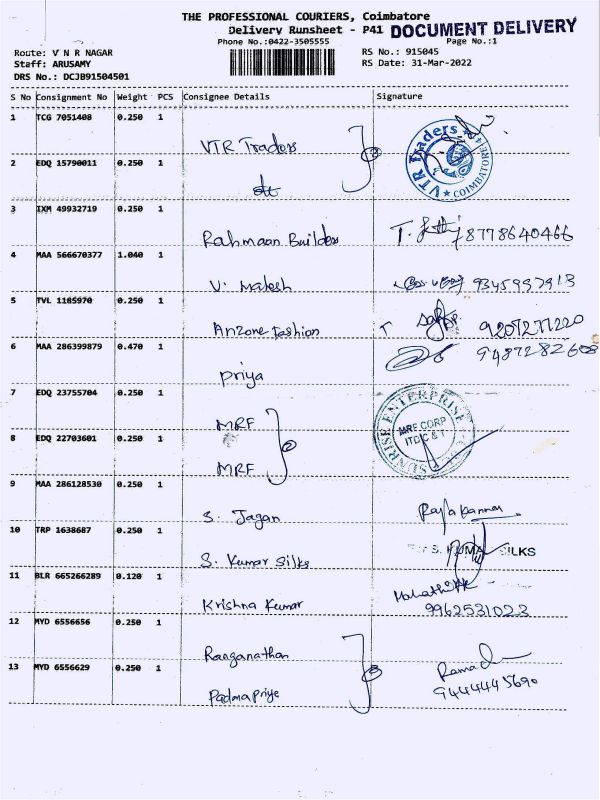 THE PROFESSIONAL COURIERS, Coimbatore
Delivery Runsheet - P41 DOCUMENT DELIVERY
Phone No.:0422-3505555 Page No.:1
Route: V N R NAGAR RS No.: 915045
Staff: ARUSAMY RS Date: 31-Mar-2022
DRS No.: DCJB91504501
S No Consignment No Weight PCS Consignee Details Signature
1 TCG 7051408 0.250 1
VTR Traders VTR Traders ★ COIMBATORE
2 EDQ 15790011 0.250 1
3 IXM 49932719 0.250 1
Rahmaan Builders T. 8778640466
4 MAA 566670377 1.040 1
V. Matesh 9345997913
5 TVL 1185970 0.250 1
Anzone Fashion 9207277220
6 MAA 286399879 0.470 1 9487282608
Priya
7 EDQ 23755704 0.250 1
MRF SUNRISE ENTERPRISE
MRF CORP
8 EDQ 22703601 0.250 1
MRF
9 MAA 286128530 0.250 1
S. Jagan Rajakannan
10 TRP 1638687 0.250 1
S. Kumar Silks S. KUMA SILKS
11 BLR 665266289 0.120 1
Krishna Kumar 9962531023
12 MYD 6556656 0.250 1
Ranganathan
13 MYD 6556629 0.250 1 Rama
Padma Priye 9444445690